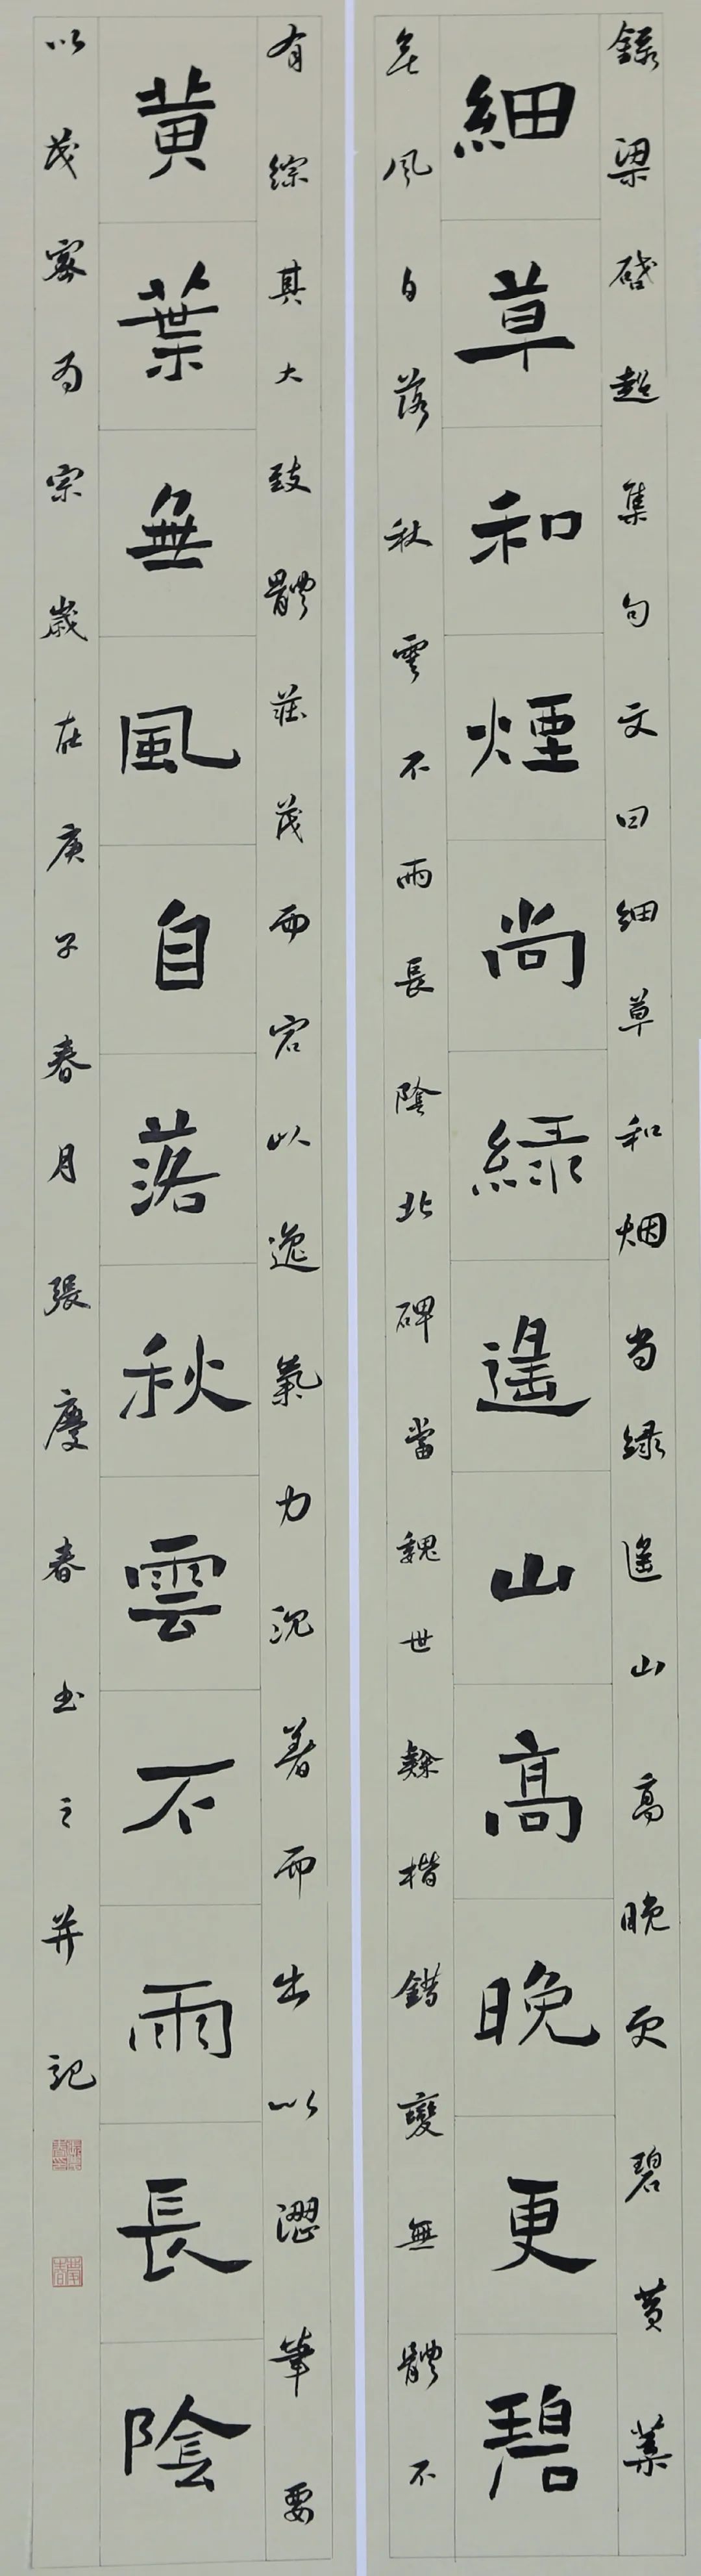 錄梁啓超集句文曰細草和烟尚綠遙山高晚更碧黃葉
細草和煙尚綠遙山高晚更碧
無風自落秋雲不雨長陰北碑當魏世隸楷錯變無體不
有綜其大致體莊茂而宕以逸氣力沉著而出以澀筆要
黃葉無風自落秋雲不雨長陰
以茂密為宗歲在庚子春月張慶春書之並記